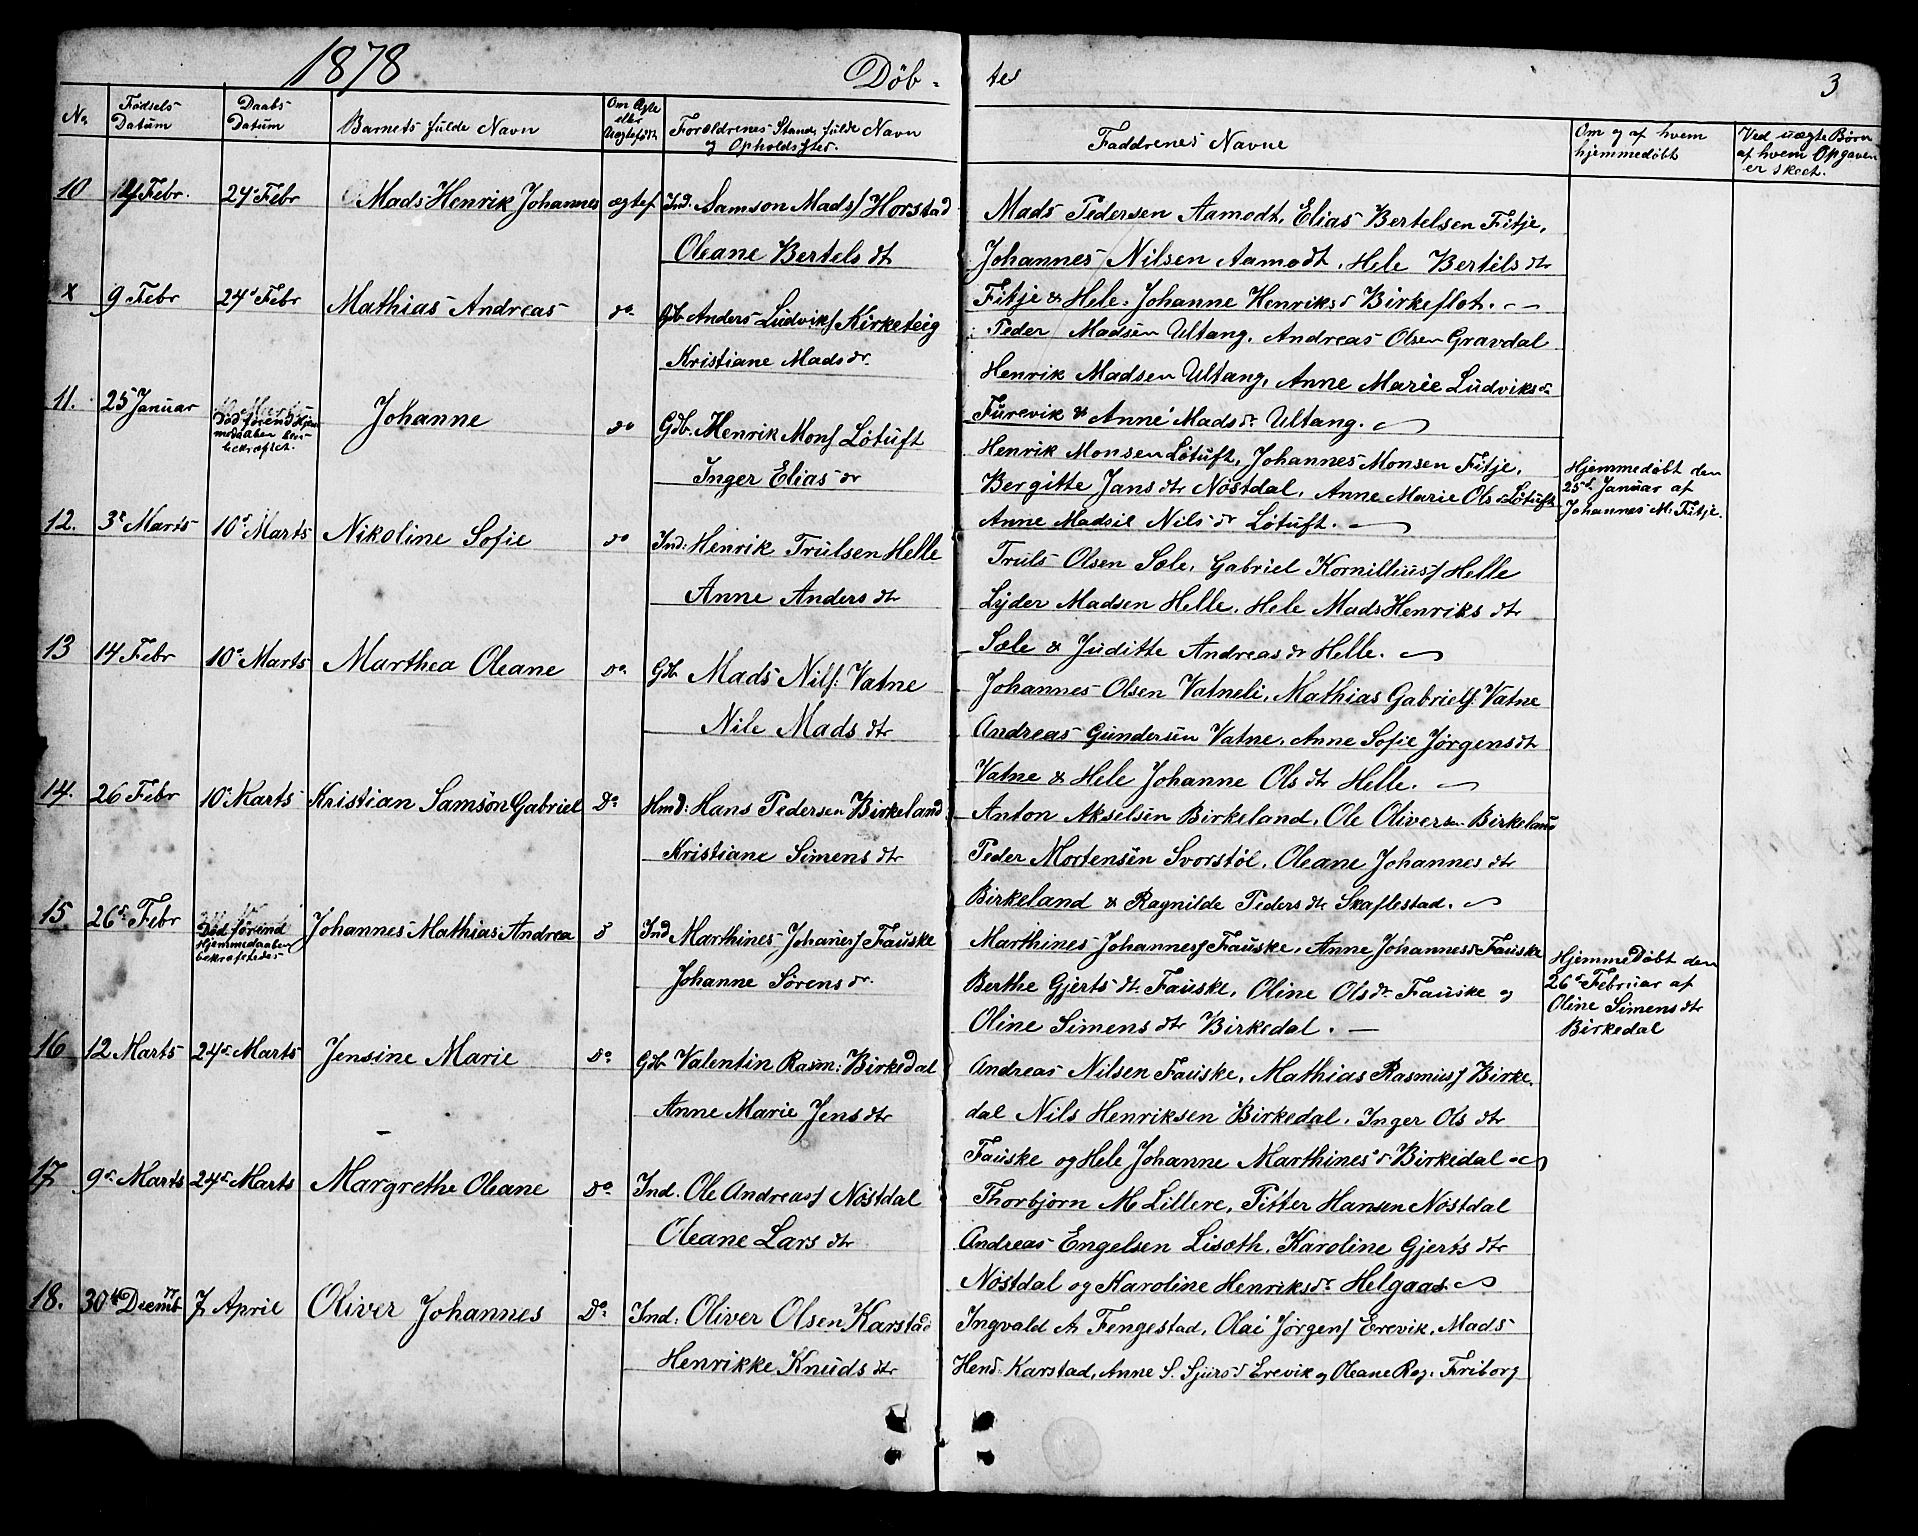 1878
Döb-
tes
3
No
Fødsels Datum
Daabs Datum
Barnets fulde Navn
Om Ægte eller Uægtefødt
Forældrenes Stand, fulde Navn og Opholdssted.
Faddrenes Navne
Om og af hvem hjemmedøbt
Ved uægte Børn af hvem Opgaven er skeet.
10 Febr. 24s Febr Mads Henrik Johannes ægtef Ind. Samson Mads/ Horstad
Oleane Bertels dtr
Mads Pedersen Aamodt, Elias Bertelsen Fitje,
Johannes Nilsen Aamodt, Hele Bertels dtr
Fitje & Hele Johanne Henriks d Birkeflot.
x 9 Febr 24s Febr Mathias Andreas do Gb. Anders Ludviks/ Kirketeig
Kristiane Mads dr.
Peder Madsen Ultang, Andreas Olsen Gravdal
Henrik Madsen Ultang, Anne Marie Ludviks dr
Furevik & Anne Mads dr Ultang.
11. 25 Januar Død førend Hjemmedaaben blev bekræftet. Johanne do Gdb. Henrik Mons/ Løtuft
Inger Elias dr
Henrik Monsen Løtuft, Johannes Monsen Fitje,
Bergitte Jans dtr Nøstdal, Anne Marie Ols d Løtuft
Anne Madsil Nils dr Løtuft.
Hjemmedøbt den
25d. Januar af
Johannes M. Fitje.
12. 3d Marts 10d Marts Nikoline Sofie do Ind: Henrik Trulsen Helle
Anne Anders dtr
Truls Olsen Sæle, Gabriel Kornillius/ Helle
Lyder Madsen Helle, Hele Mads Henriks dtr
Sæle & Juditte Andreas dr Helle.
13 14 Febr 10s Marts Marthea Oleane Do. Gb Mads Nils/: Vatne
Nile Mads dtr
Johannes Olsen Vatneli, Mathias Gabriels/ Vatne
Andreas Gundersen Vatne, Anne Sofie Jørgens dt
Vatne & Hele Johanne Ols dtr Helle.
14. 26 Febr 10s Marts Kristian Samson Gabriel Do Hmd: Hans Pedersen Birkeland
Kristiane Simens dtr
Anton Akselsen Birkeland, Ole Oliversen Birkeland
Peder Mortensen Svorstøl, Oleane Johannes dtr
Birkeland & Ragnilde Peders dtr Skaflestad.
15 26d Febr Død førend Hjemmedaaben bekræftedes Johannes Mathias Andrea d Ind Marthines Johanes/ Fauske
Johanne Sørens dr.
Marthines Johannes/ Fauske, Anne Johannes dr Fauske
Berthe Gjerts dtr Fauske, Oline Ols dr Fauske og
Oline Simens dtr Birkedal.
HjemmeDøbt den
26d Februar af
Oline Simens dtr
Birkedal
16 12 Marts 24d Marts Jensine Marie Do Gb Valentin Rasm: Birkedal
Anne Marie Jens dtr
Andreas Nilsen Fauske, Mathias Rasmus/ Birke-
dal Nils Henriksen Birkedal, Inger Ols dtr
Fauske og Hele Johanne Marthines d Birkedal
17 9d Marts 24d Marts Margrethe Oleane Do. Ind. Ole Andreas/ Nøstdal
Oleane Lars dtr
Thorbjørn M Lillere, Pitter Hansen Nøstdal
Andreas Engelsen Lisæth, Karoline Gjerts dtr
Nøstdal og Karoline Henriks dr Helgaas.
18. 30te Decmb 77 7 April Oliver Johannes Do. Ind. Oliver Olsen Karstad
Henrikke Knuds dtr
Ingvald A Fengestad, Olai Jørgens/ Erevik, Mads
Hend. Karstad, Anne S. Sjurs d Erevik og Oleane Rag. Friborg